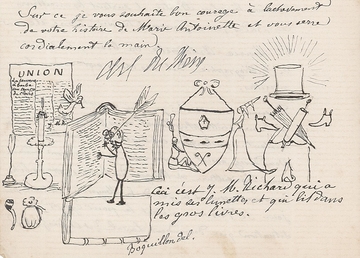 Sur ce je vous souhaite bon courage à l'achèvement
de votre histoire de Marie Antoinette et vous serre
cordialement la main
UNION
Ceci c'est M. Richard qui a
mis ses lunettes et qui lit dans
les gros livres.
Boquillon del.